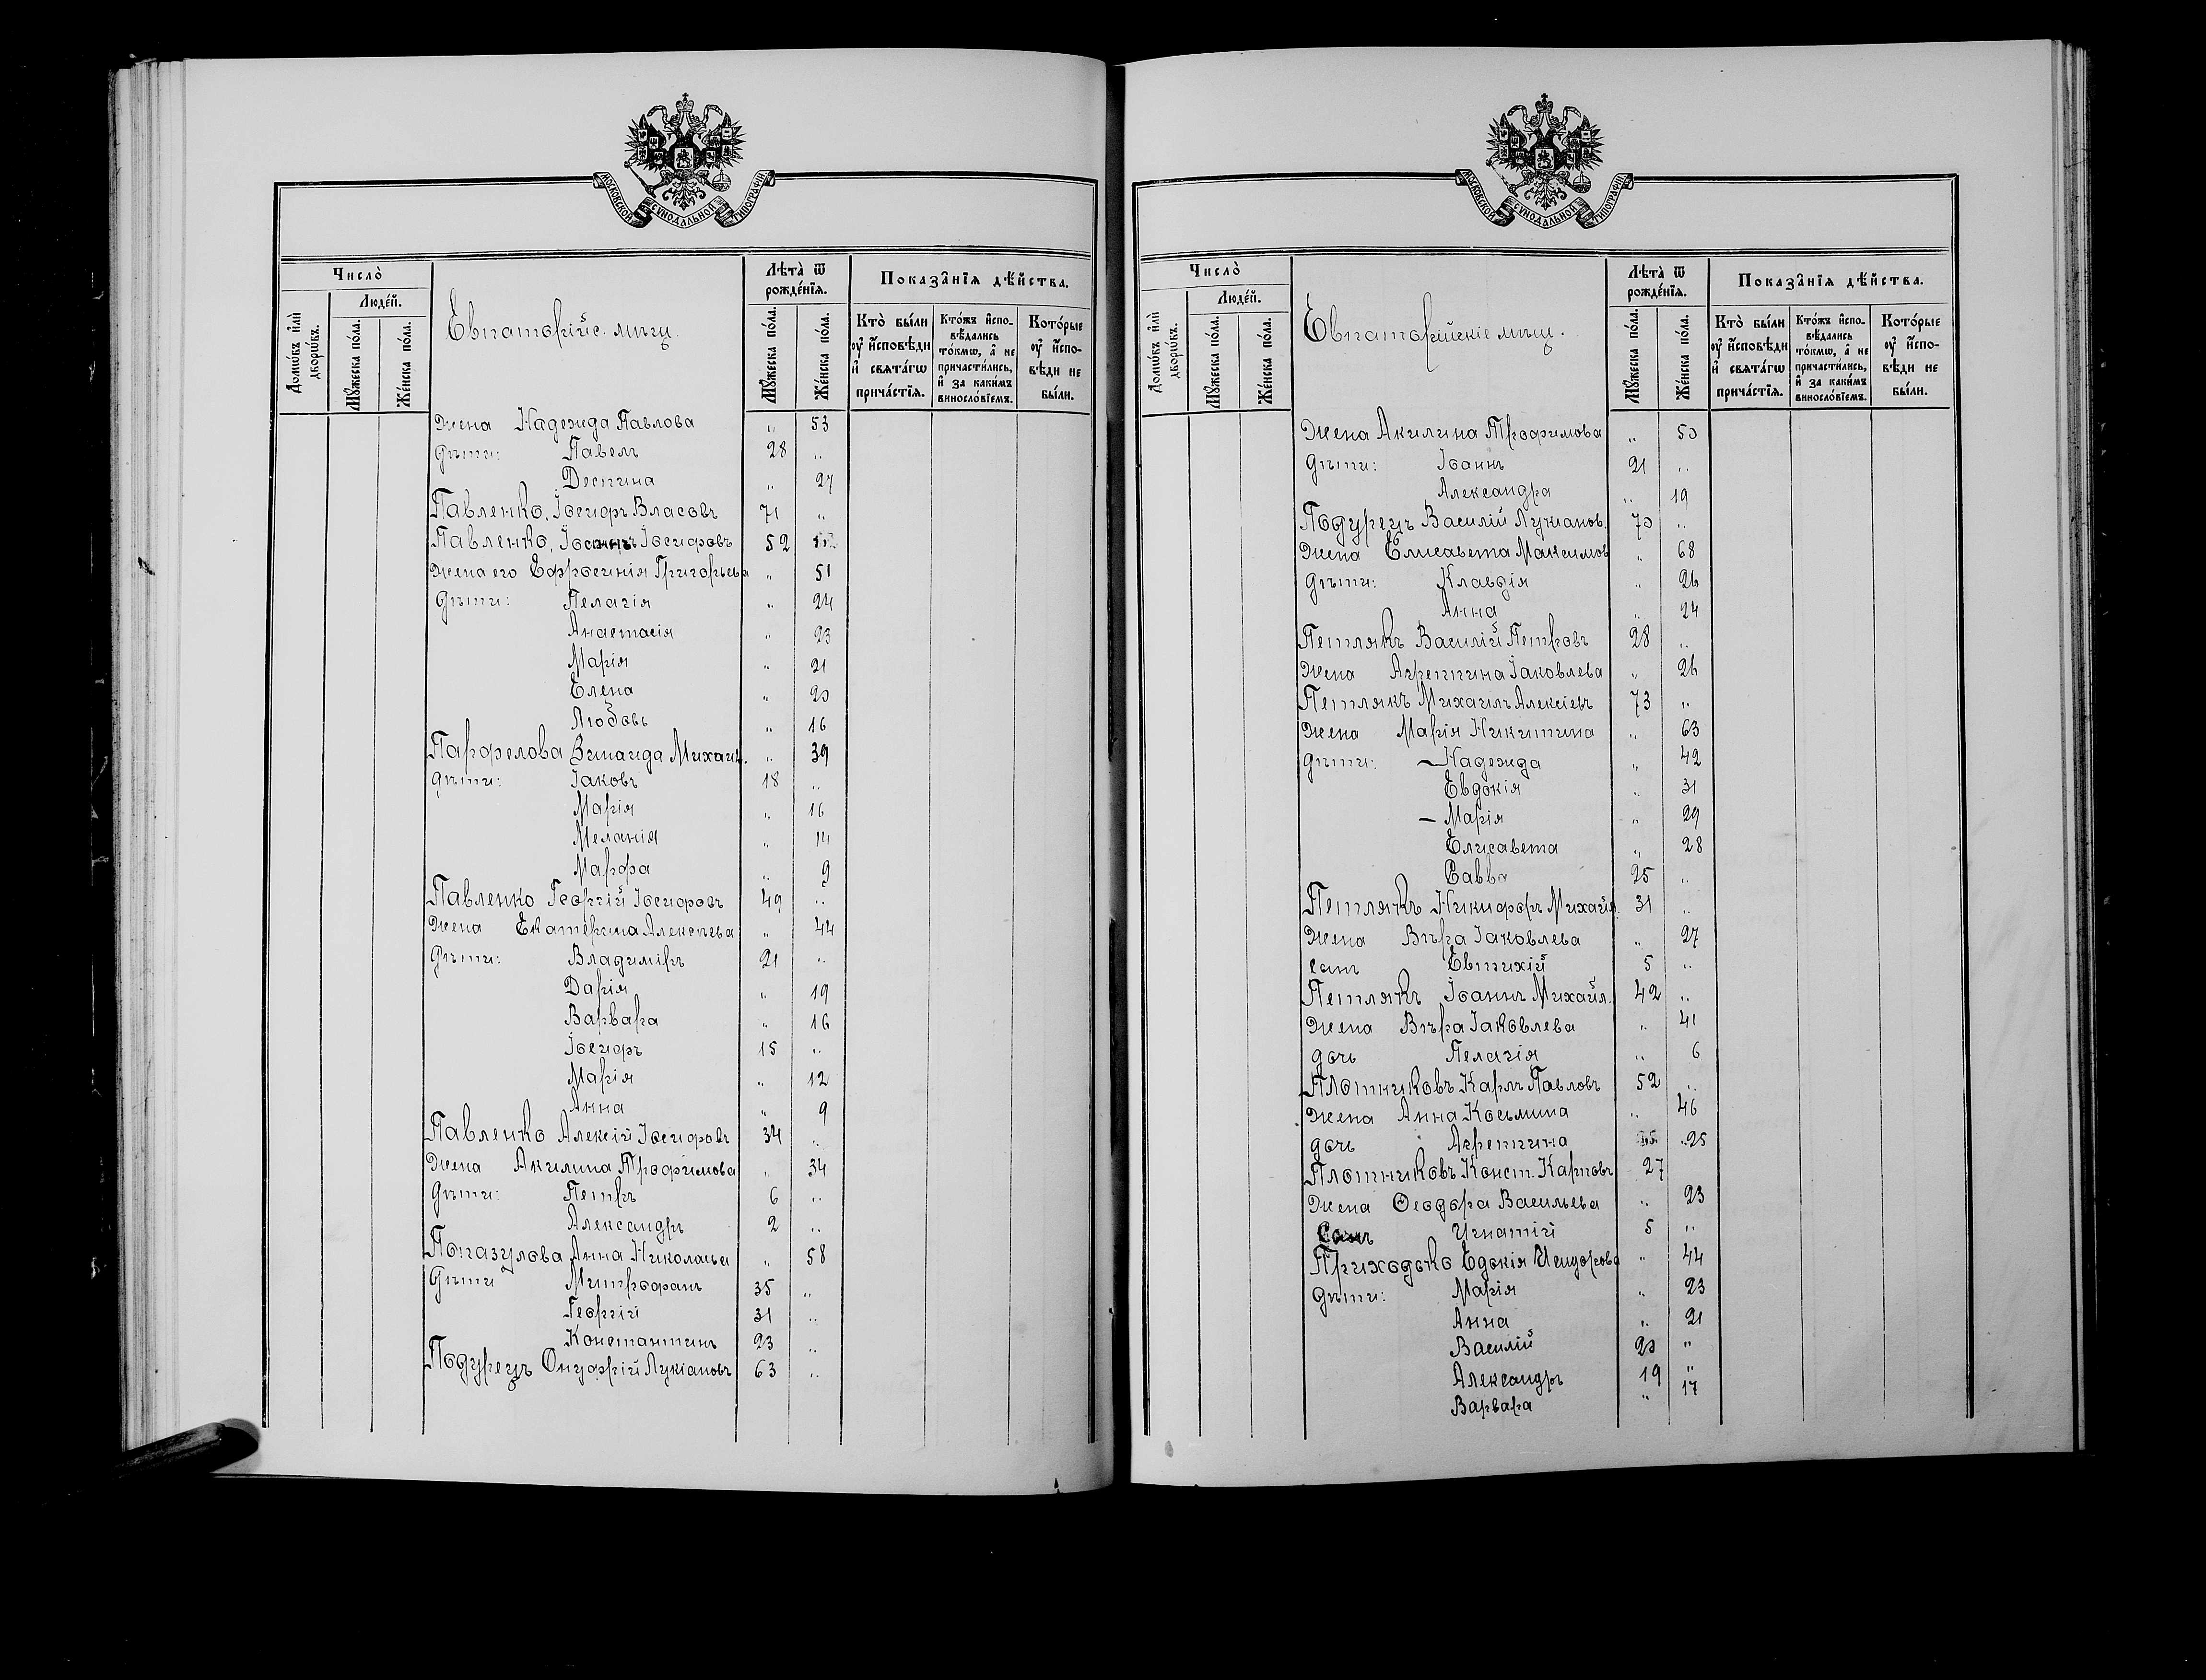 МОСКОВСКОЙ СѴНОДАЛЬНОЙ ТИПОГРАФІИ
Число̀
Людéй.
Домѡ́въ и҆лѝ дворѡ́въ.
Мꙋ́жеска по́ла.
Же́нска по́ла.
Евпаторійс. мѣщ.
Лѣта̀ ѿ рожде́нїѧ.
Мꙋ́жеска по́ла.
Же́нска по́ла.
Показа̑нїѧ дѣ́йства.
Кто̀ бы́ли ᲂу҆ и҆сповѣ́ди и҆ свѧта́гѡ прича́стїѧ.
Кто́жъ и҆сповѣ́дались то́кмѡ, а҆ не причасти́лись, и҆ за каки́мъ винослов́їемъ.
Кото́рые ᲂу҆ и҆сповѣ́ди не бы́ли.
Жена Надежда Павлова „ 53
Дѣти: Павелъ 28 „
Деспина „ 27
Павленко, Іосифъ Власовъ 71 „
Павленко, Іоаннъ Іосифовъ 52
Жена его Ефросинія Григорьева „ 51
Дѣти: Пелагія „ 24
Анастасія „ 23
Марія „ 21
Елена „ 20
Любовь „ 16
Парфелова Зинаида Михаил. „ 39
Дѣти: Іаковъ 18 „
Марія „ 16
Меланія „ 14
Марфа „ 9
Павленко Георгій Іосифовъ 49 „
Жена Екатерина Алексѣева „ 44
Дѣти: Владиміръ 21 „
Дарія „ 19
Варвара „ 16
Іосифъ 15 „
Марія „ 12
Анна „ 9
Павленко Алексій Іосифовъ 34 „
Жена Акилина Трофимова „ 34
Дѣти: Петръ 6 „
Александръ 2 „
Попазулова Анна Николаева „ 58
Дѣти Митрофанъ 35 „
Георгій 31 „
Константинъ 23 „
Подурецъ Онуфрій Лукіановъ 63 „
МОСКОВСКОЙ СѴНОДАЛЬНОЙ ТИПОГРАФІИ
Число̀
Людéй.
Домѡ́въ и҆лѝ дворѡ́въ.
Мꙋ́жеска по́ла.
Же́нска по́ла.
Евпаторійскіе мѣщ.
Лѣта̀ ѿ рожде́нїѧ.
Мꙋ́жеска по́ла.
Же́нска по́ла.
Показа̑нїѧ дѣ́йства.
Кто̀ бы́ли ᲂу҆ и҆сповѣ́ди и҆ свѧта́гѡ прича́стїѧ.
Кто́жъ и҆сповѣ́дались то́кмѡ, а҆ не причасти́лись, и҆ за каки́мъ винослов́їемъ.
Кото́рые ᲂу҆ и҆сповѣ́ди не бы́ли.
Жена Акилина Трофимова „ 50
Дѣти: Іоаннъ 21 „
Александра „ 19
Подурецъ Василій Лукіанов. 70 „
Жена Елисавета Максимов „ 68
Дѣти: Клавдія „ 26
Анна „ 24
Петлякъ Василій Петровъ 28 „
Жена Агрепина Іаковлева „ 26
Петлякъ Михаилъ Алексіевъ 73 „
Жена Марія Никитина „ 63
Дѣти: – Надежда „ 42
Евдокія „ 31
– Марія „ 29
Елисавета „ 28
Савва 25 „
Петлякъ Никифоръ Михайл. 31 „
Жена Вѣра Іаковлева „ 27
сынъ Евтихій 5 „
Петлякъ Іоаннъ Михайл. 42 „
Жена Вѣра Іаковлева „ 41
дочь Пелагія „ 6
Плотниковъ Карпъ Павловъ 52 „
Жена Анна Косьмина „ 46
дочь Агрепина „ 25
Плотниковъ Конст. Карповъ 27
Жена Ѳеодора Васильева „ 23
Сынъ Игнатій 5 „
Приходько Едокія Исидорова „ 44
Дѣти: Марія „ 23
Анна „ 21
Василій 20 „
Александръ 19 „
Варвара „ 17